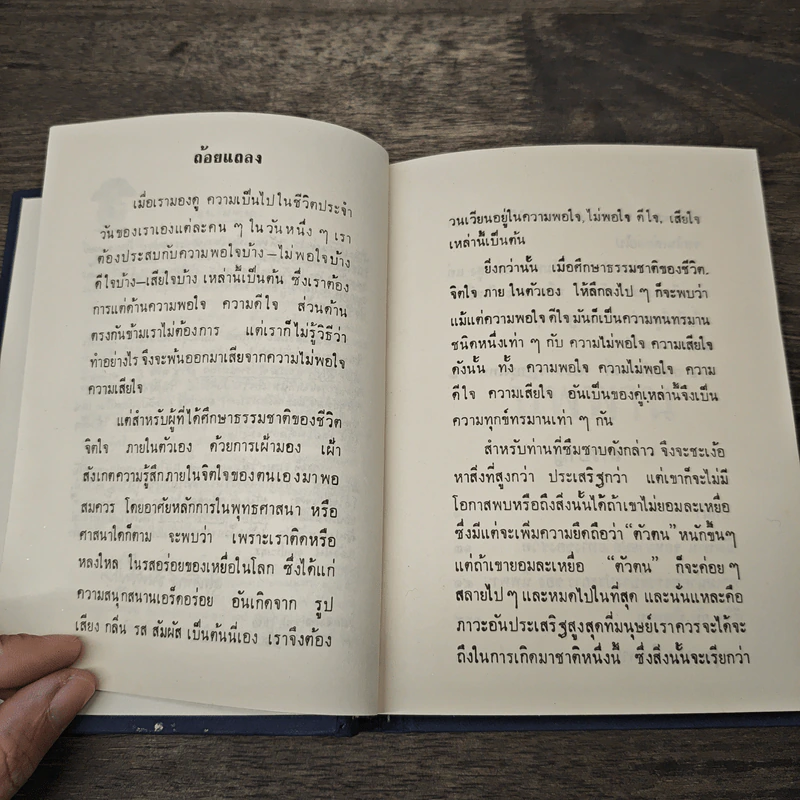 ถ้อยแถลง
เมื่อเรามองดู ความเป็นไปในชีวิตประจำ
วันของเราเองแต่ละคน ๆ ในวันหนึ่ง ๆ เรา
ต้องประสบกับความพอใจบ้าง—ไม่พอใจบ้าง
ดีใจบ้าง—เสียใจบ้าง เหล่านี้เป็นต้น ซึ่งเราต้อง
การแต่ด้านความพอใจ ความดีใจ ส่วนด้าน
ตรงกันข้ามเราไม่ต้องการ แต่เราก็ไม่รู้วิธีว่า
ทำอย่างไร จึงจะพ้นออกมาเสียจากความไม่พอใจ
ความเสียใจ
แต่สำหรับผู้ที่ได้ศึกษาธรรมชาติของชีวิต
จิตใจ ภายในตัวเอง ด้วยการเฝ้ามอง เฝ้า
สังเกตความรู้สึกภายในจิตใจของตนเองมาพอ
สมควร โดยอาศัยหลักการในพุทธศาสนา หรือ
ศาสนาใดก็ตาม จะพบว่า เพราะเราติดหรือ
หลงใหล ในรสอร่อยของเหยื่อในโลก ซึ่งได้แก่
ความสนุกสนานเอร็ดอร่อย อันเกิดจาก รูป
เสียง กลิ่น รส สัมผัส เป็นต้นนี่เอง เราจึงต้อง
วนเวียนอยู่ในความพอใจ, ไม่พอใจ ดีใจ, เสียใจ
เหล่านี้เป็นต้น
ยิ่งกว่านั้น เมื่อศึกษาธรรมชาติของชีวิต.
จิตใจ ภายในตัวเอง ให้ลึกลงไป ๆ ก็จะพบว่า
แม้แต่ความพอใจ ดีใจ มันก็เป็นความทนทรมาน
ชนิดหนึ่งเท่า ๆ กับ ความไม่พอใจ ความเสียใจ
ดังนั้น ทั้ง ความพอใจ ความไม่พอใจ ความ
ดีใจ ความเสียใจ อันเป็นของคู่เหล่านี้จึงเป็น
ความทุกข์ทรมานเท่า ๆ กัน
สำหรับท่านที่ซึมซาบดังกล่าว จึงจะชะเง้อ
หาสิ่งที่สูงกว่า ประเสริฐกว่า แต่เขาก็จะไม่มี
โอกาสพบหรือถึงสิ่งนั้นได้ถ้าเขาไม่ยอมละเหยื่อ
ซึ่งมีแต่จะเพิ่มความยึดถือว่า "ตัวตน" หนักขึ้นๆ
แต่ถ้าเขายอมละเหยื่อ "ตัวตน" ก็จะค่อย ๆ
สลายไป ๆ และหมดไปในที่สุด และนั่นแหละคือ
ภาวะอันประเสริฐสูงสุดที่มนุษย์เราควรจะได้จะ
ถึงในการเกิดมาชาติหนึ่งนี้ ซึ่งสิ่งนั้นจะเรียกว่า